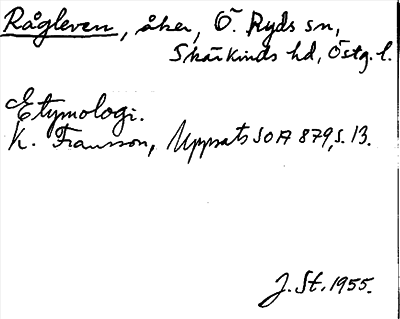 Rågleven, åker, Ö. Ryds sn,
Skärkinds hd, Östg. l.
Etymologi.
K. Fransson, Uppsats SOA 879, s. 13.
J. St. 1955.